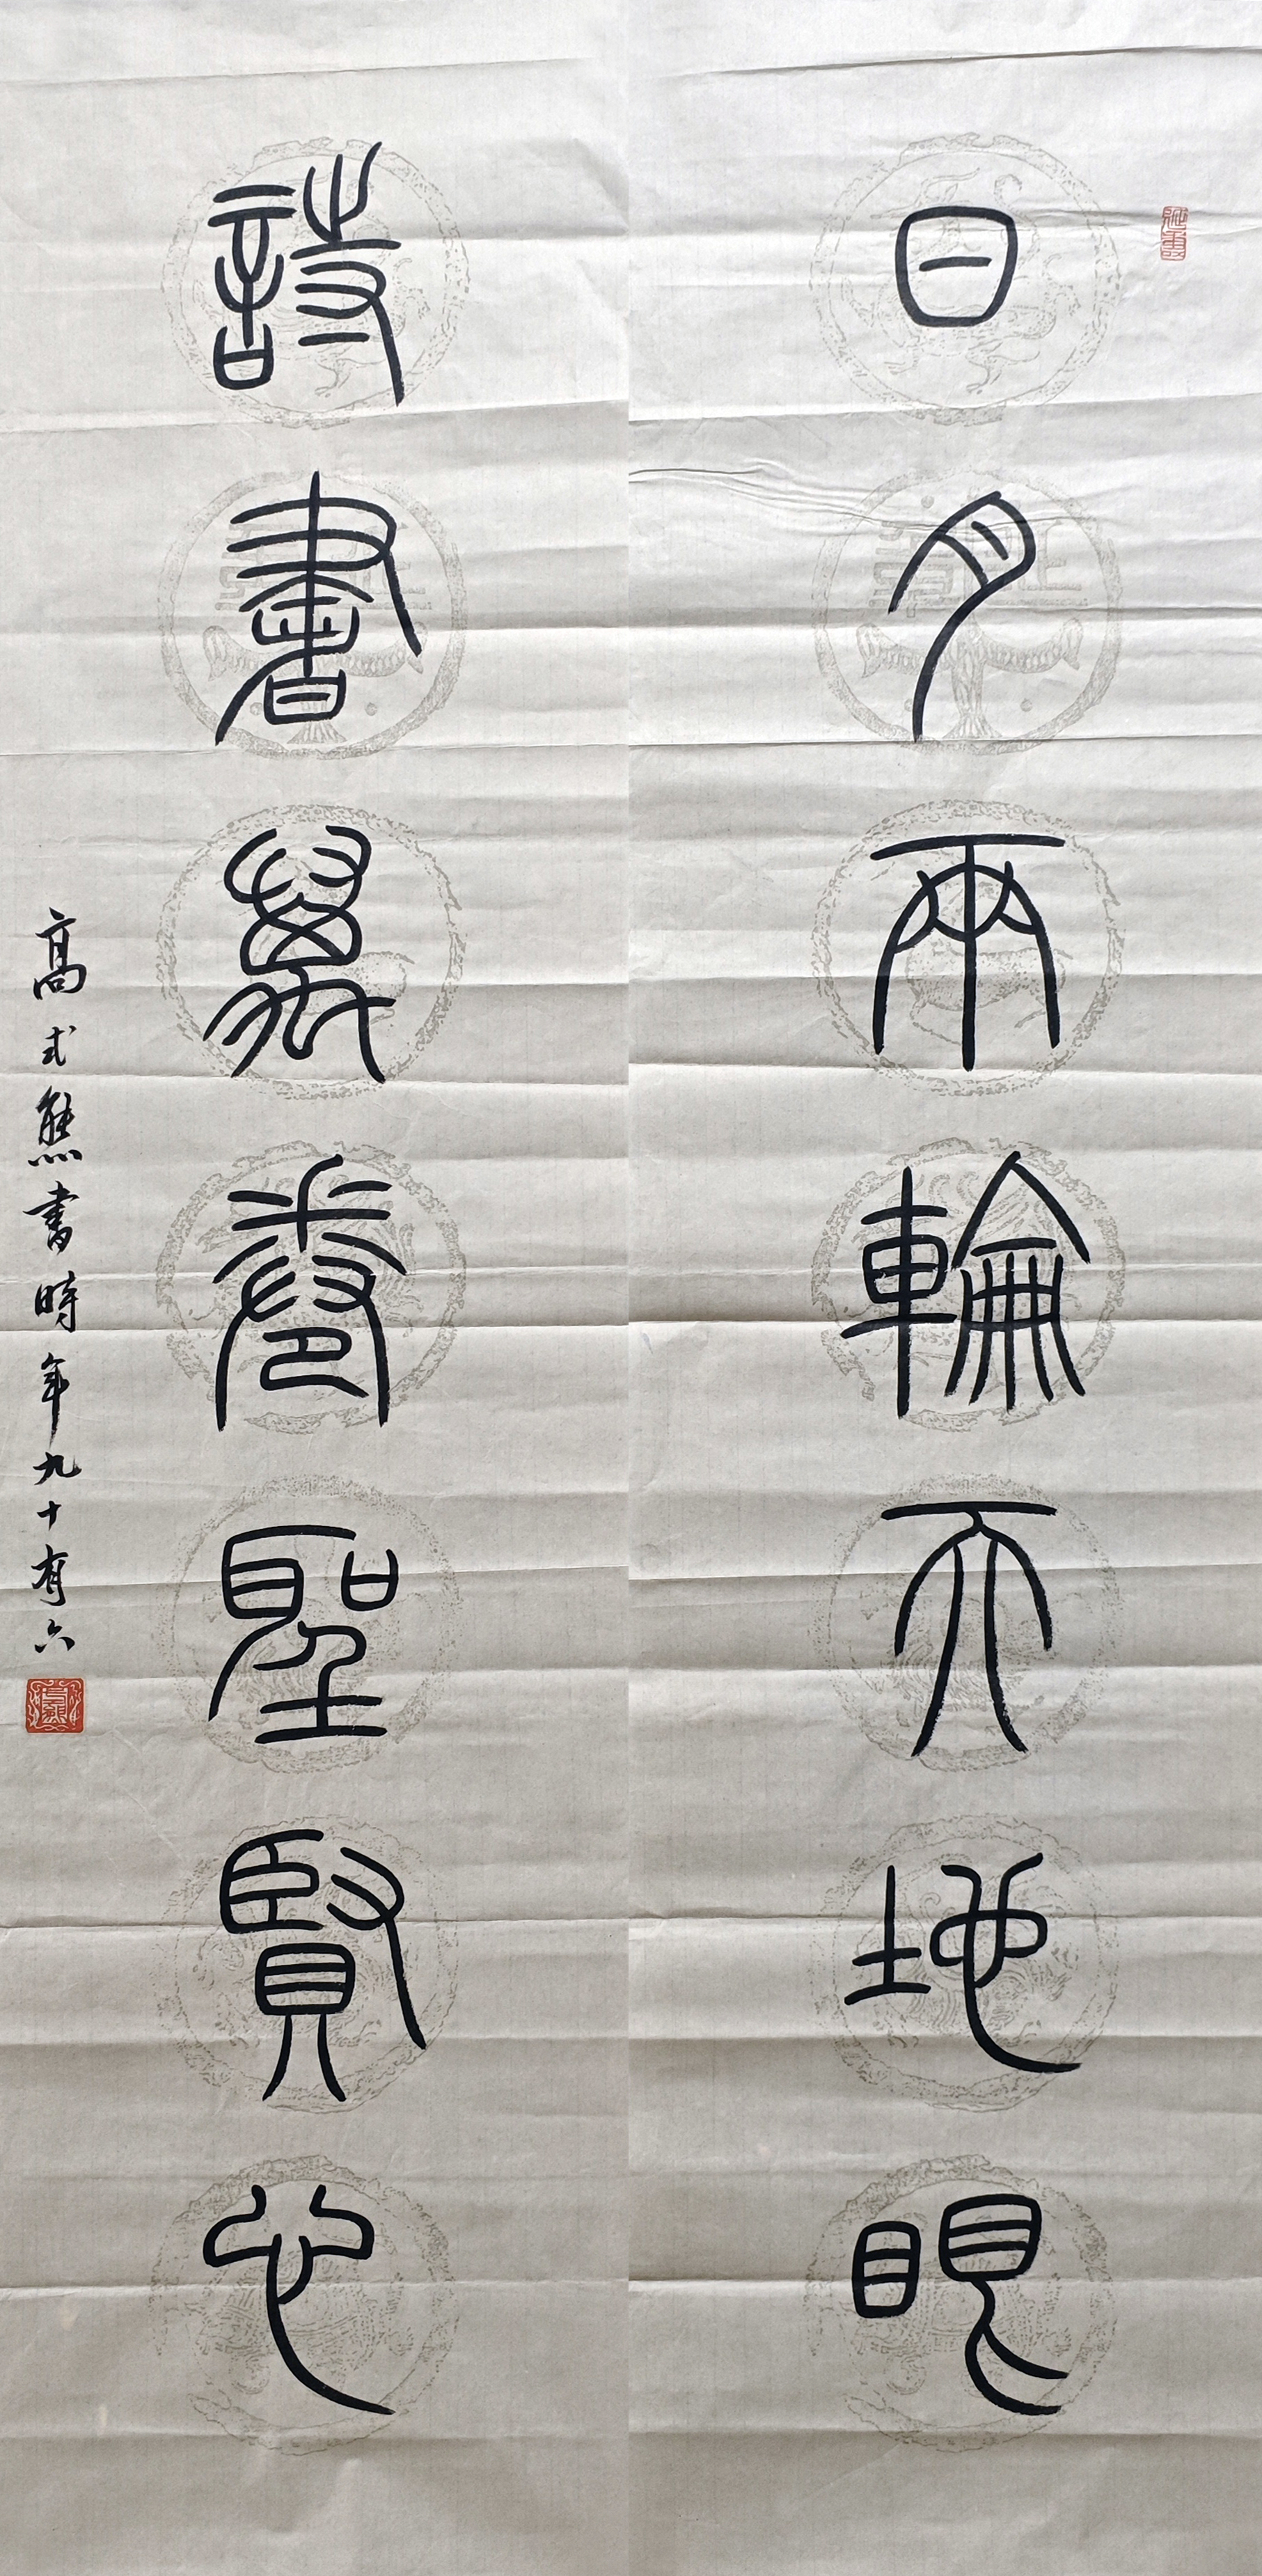 日月兩輪天地眼
詩書萬卷聖賢心
高式熊書時年九十有六